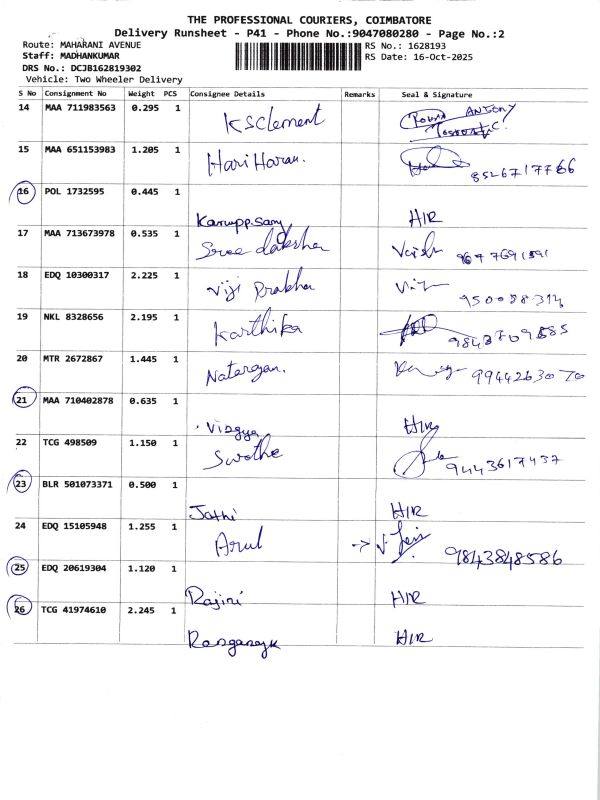 THE PROFESSIONAL COURIERS, COIMBATORE
Delivery Runsheet - P41 - Phone No.:9047080280 - Page No.:2
Route: MAHARANI AVENUE
RS No.: 1628193
Staff: MADHANKUMAR
RS Date: 16-Oct-2025
DRS No.: DCJB162819302
Vehicle: Two Wheeler Delivery
S No Consignment No Weight PCS Consignee Details Remarks Seal & Signature
14 MAA 711983563 0.295 1 KSClement ANTONY
15 MAA 651153983 1.205 1 Hari Haran. 8526717766
16 POL 1732595 0.445 1 Karuppsamy HIR
17 MAA 713673978 0.535 1 Sree daksha
18 EDQ 10300317 2.225 1 Viji Prabha 950088314
19 NKL 8328656 2.195 1 Karthika 9843709585
20 MTR 2672867 1.445 1 Natargan. 9944263070
21 MAA 710402878 0.635 1 HIR
22 TCG 498509 1.150 1 Swathe 9443617437
23 BLR 501073371 0.500 1 Jothi HIR
24 EDQ 15105948 1.255 1 Arul 9843848586
25 EDQ 20619304 1.120 1 Rajini HIR
26 TCG 41974610 2.245 1 HIR